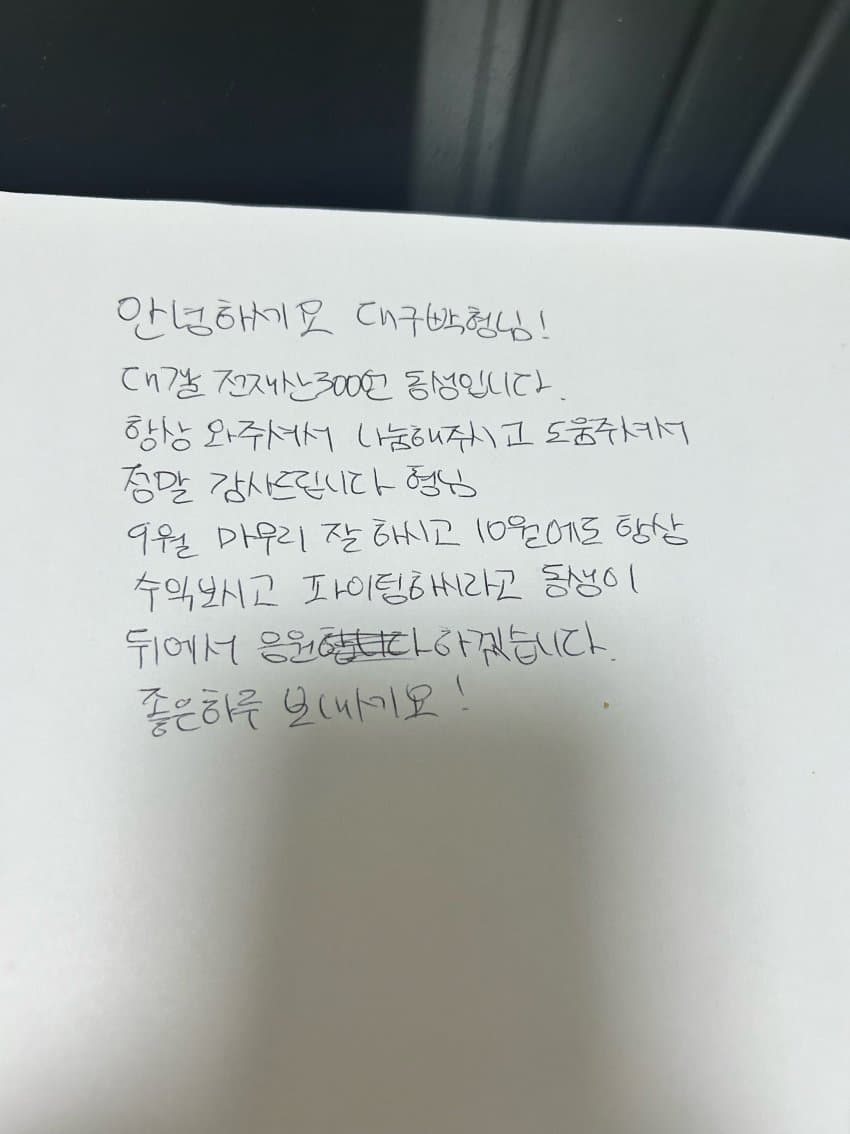 안녕하세요 대구박형님!
대갤 전재산300원 동생입니다.
항상 와주셔서 나눔해주시고 도움주셔서
정말 감사드립니다 형님
9월 마무리 잘 하시고 10월에도 항상
수익보시고 파이팅하시라고 동생이
뒤에서 응원합니다하겠습니다.
좋은하루 보내세요!